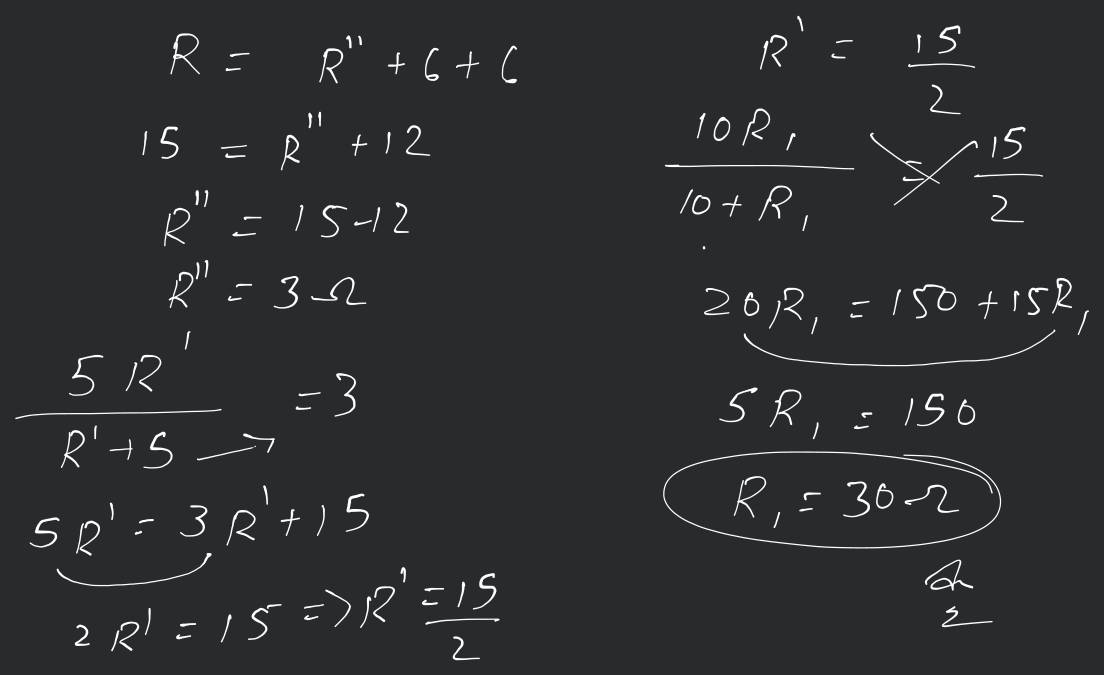 R = R'' + 6 + 6
15 = R'' + 12
R'' = 15-12
R'' = 3 Ω
5 R' / R' + 5 = 3
5 R' = 3 R' + 15
2 R' = 15 => R' = 15 / 2
R' = 15 / 2
10 R₁ / 10 + R₁ = 15 / 2
20 R₁ = 150 + 15 R₁
5 R₁ = 150
R₁ = 30 Ω